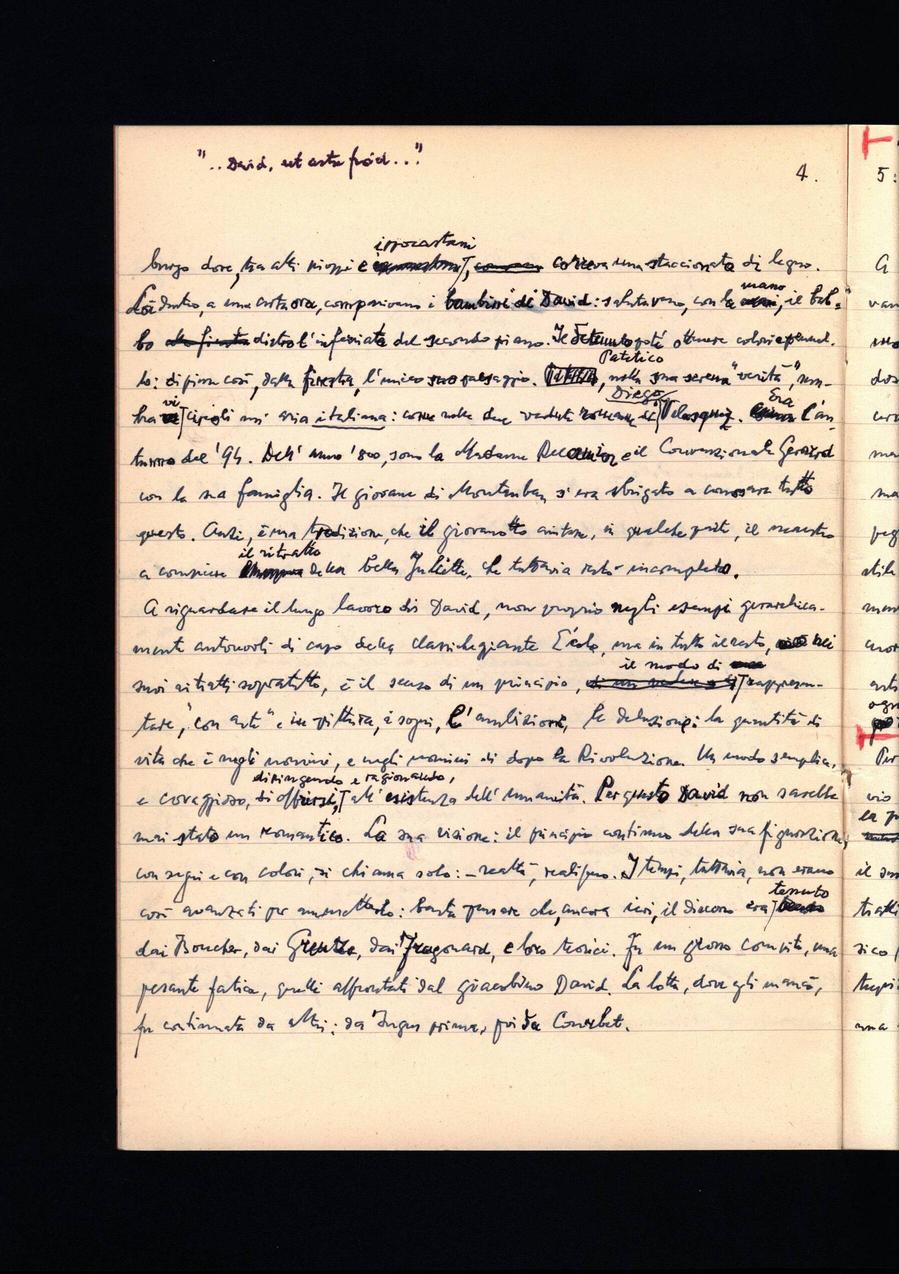 "..David, est astu froid..."
4.
5:
ippocastani
lungo dove, tra alti pioppi e correva una staccionata di legno.
Là dentro, a una certa ora, comparivano i bambini di David: salutavano, con la mano, il bab-
bo dietro l'inferriata del secondo piano. Il detenuto poté ottenere colori e pennel-
li: dipinse così, dalla finestra, l'unico suo paesaggio. Patetico, nella sua serena "verità", sem-
bra vi circoli un'aria italiana: come nelle due vedute di Diego Velasquez. Era l'au-
tunno del '94. Dell'anno '800, sono la Madame Récamier e il Convenzionale Gerard
con la sua famiglia. Il giovane di Montauban s'era sbrigato a conoscere tutto
questo. Anzi, è una tradizione, che il giovanotto aiutasse, in qualche parte, il maestro
a compiere il ritratto della bella Juliette, che tuttavia restò incompleto.
A riguardare il lungo lavoro di David, non proprio negli esempi gerarchica-
mente autorevoli di capo della classicheggiante École, ma in tutto il resto, nei
suoi ritratti sopratutto, è il senso di un principio, il modo di rappresen-
tare, "con arte" e in pittura, i sogni, l'ambizioni, le delusioni: la quantità di
vita che è negli uomini, e negli uomini di dopo la Rivoluzione. Un modo semplice,
e coraggioso, di offrirsi, dipingendo e ragionando, all'esistenza dell'umanità. Per questo David non sarebbe
mai stato un romantico. La sua visione: il principio continuo della sua figurazione,
con segni e con colori, si chiama solo: – realtà, realismo. I tempi, tuttavia, non erano
così avanzati per ammetterlo: basta pensare che, ancora ieri, il discorso era tenuto
dai Boucher, dai Greuze, dai Fragonard, e loro teorici. Fu un grosso compito, una
pesante fatica, quelli affrontati dal giacobino David. La lotta, dove egli mancò,
fu continuata da altri: da Ingres prima, poi da Courbet.